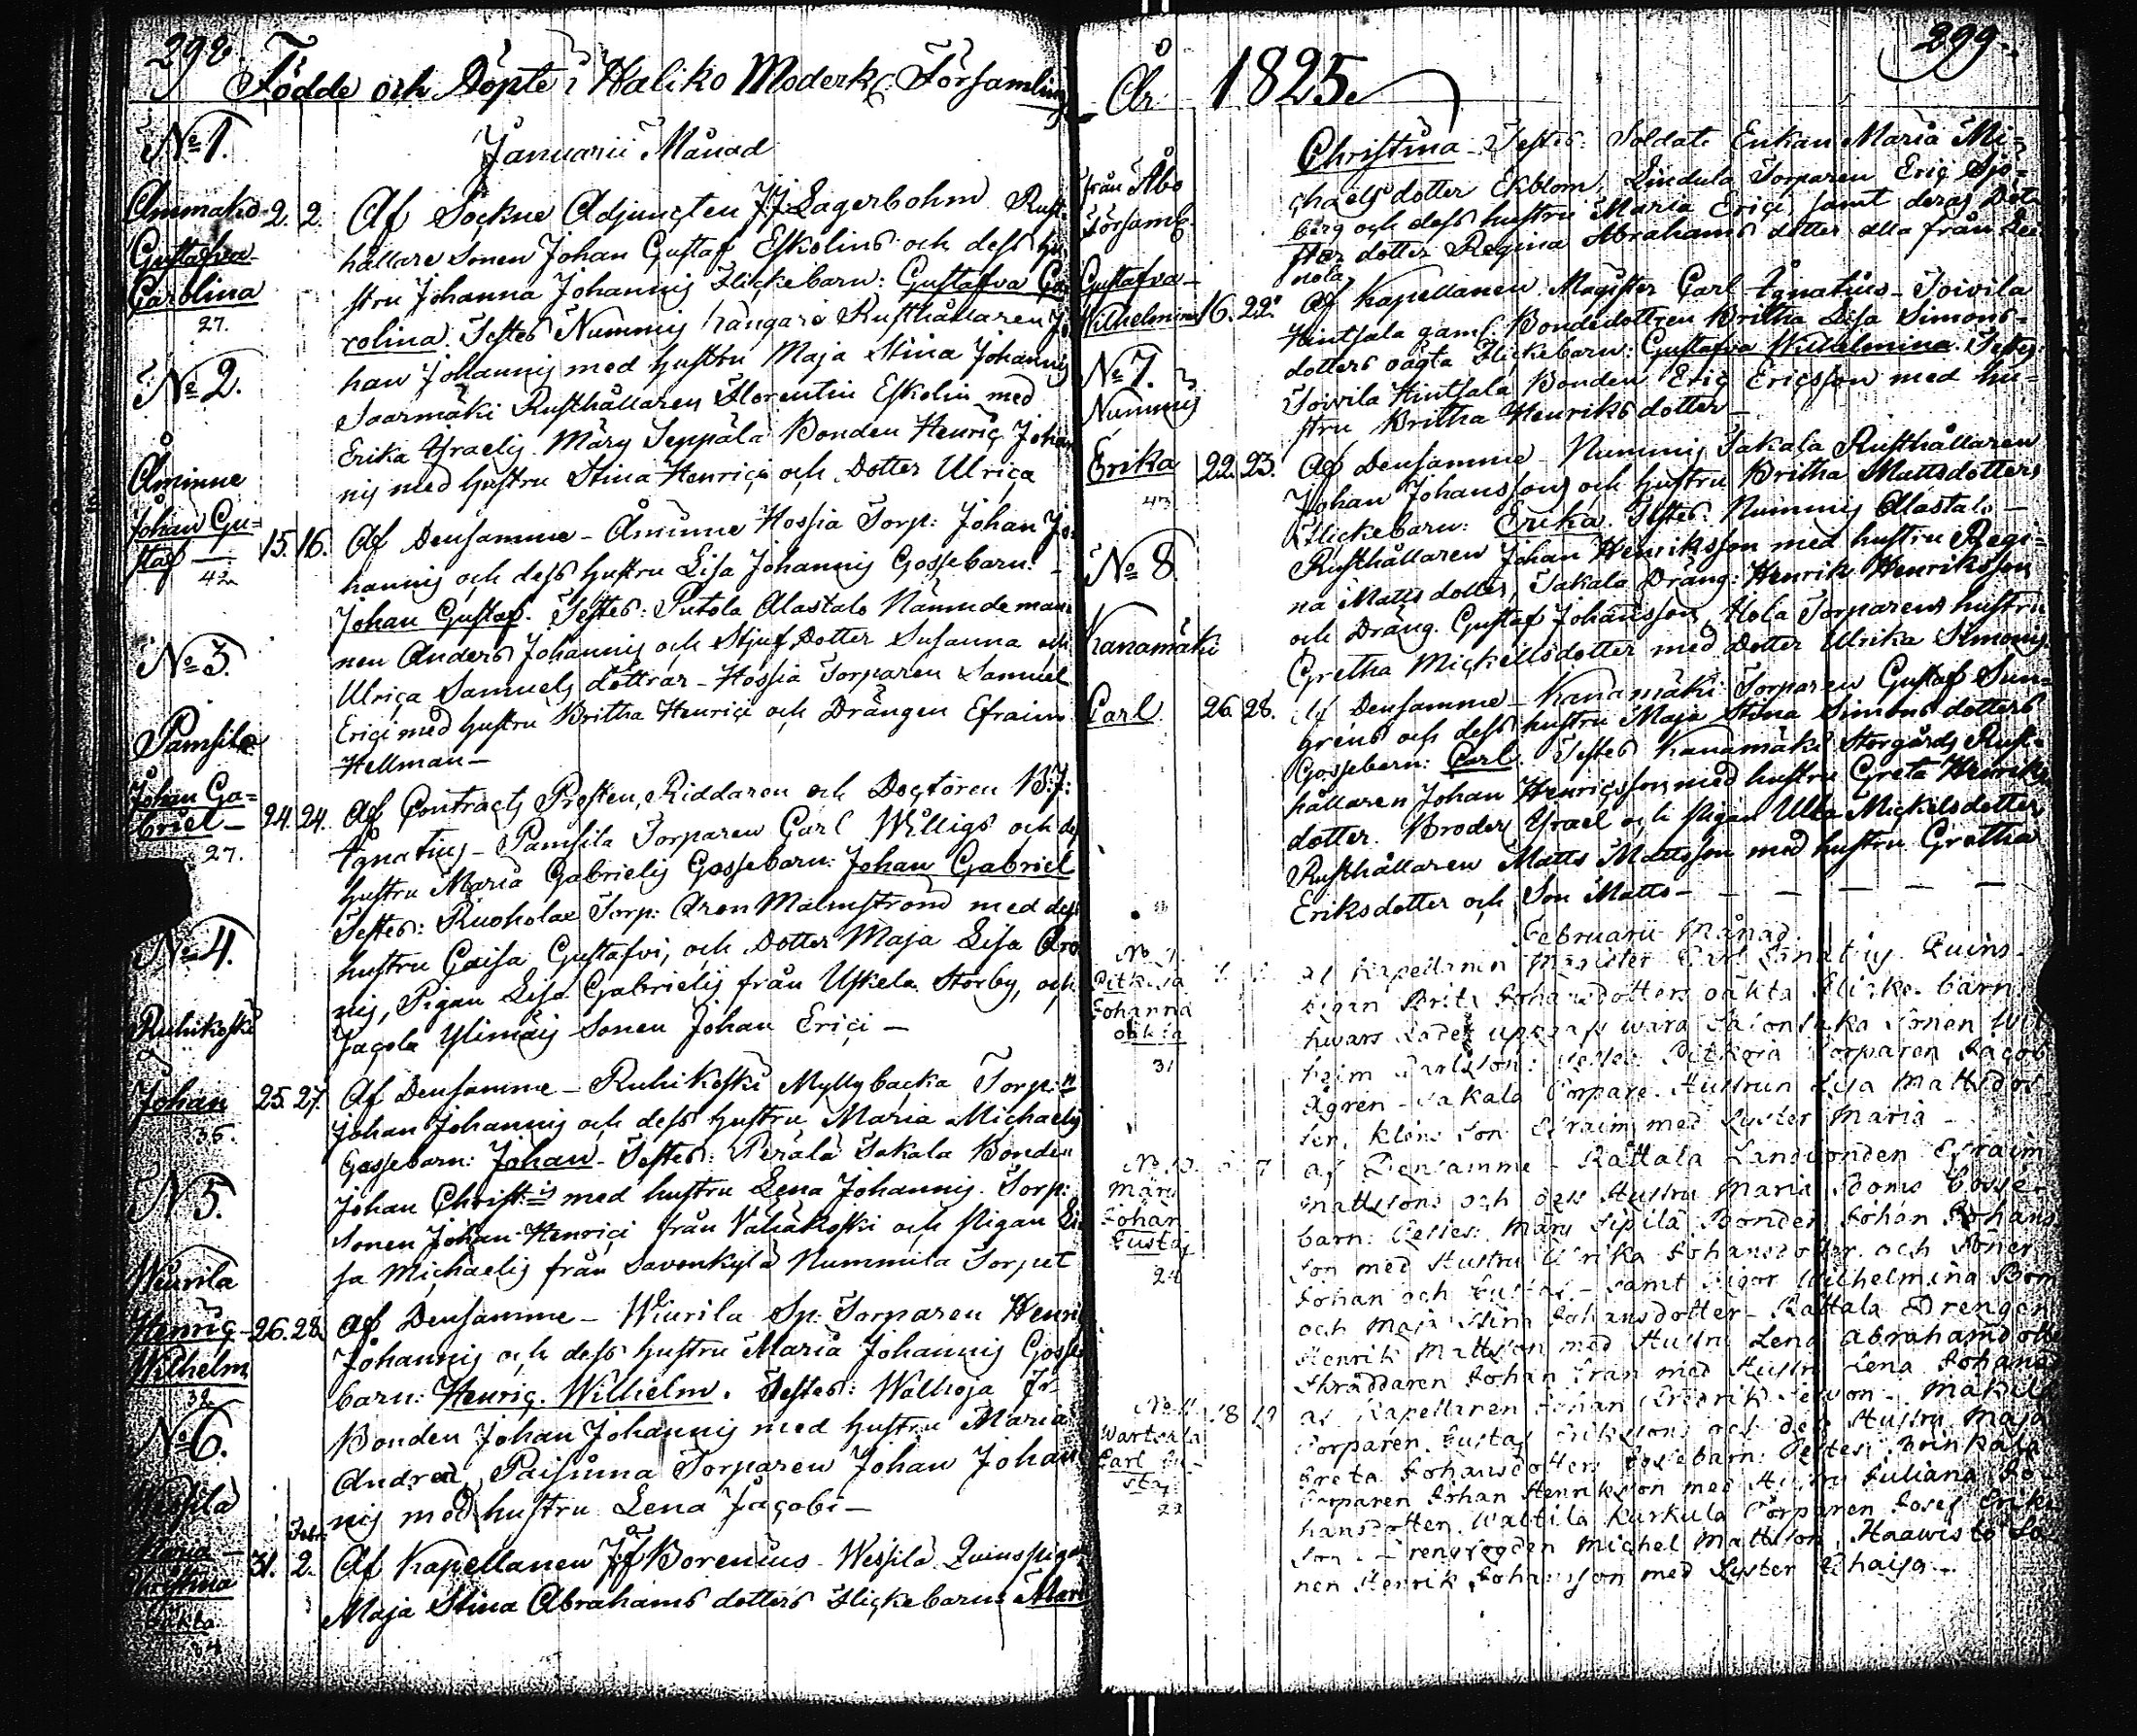 298
Födde och Döpte i Haliko Moderk: Församling
No 1.
Januarii Månad
Ammakö 2. 2. Af Sockne Adjuncten J:J: Lagerbohm Rust-
Gustafva hållare Sonen Johan Gustaf Eskolins och dess hu-
Carolina stru Johanna Johannis Flickebarn: Gustafva Ca-
27. rolina. Testes Nummis Kångare Rusthållaren Jo-
han Johannis med hustru Maja Stina Johannis
No 2. Soarmäki Rusthållaren Florentin Eskolin med
Erika Israelis. Märy Seppälä Bonden Henric Johan
nis med hustru Stina Henrici och Dotter Ulrica
Åminne
Johan Gu= 15. 16. Af Densamme - Åminne Hossia Torp: Johan Jo
staf hannis och dess hustru Lisa Johannis Gossebarn:
42 Johan Gustaf. Testes: Putola Alastalo Nämndeman
nen Anders Johannis och Stjuf Dotter Susanna och
No 3. Ulrica Samuels döttrar - Hossia Torparen Samuel
Erici med hustru Britha Henrici och Drängen Efraim
Hellman -
Pamsila
Johan Ga= Af Contracts Prosten, Riddaren och Doctoren B:J:
briel - 24. 24. Ignatius - Pamsila Torparen Carl Willigs och de
27. hustru Maria Gabrielis Gossebarn: Johan Gabriel
Testes: Ruohola Torp: Aron Malmström med dess
No 4. hustru Caisa Gustafvi, och Dotter Maja Lisa Aro
nis, Pigan Lisa Gabrielis från Uskela Storby, och
Ruhikoski Jacola Ylimäis Sonen Johan Erici -
Johan 25. 27. Af Densamme - Ruhikoski Myllybacka Torp:n
36. Johan Johannis och dess hustru Maria Michaelis
Gossebarn: Johan - Testes: Perälä Sakala Bonden
No 5. Johan Christ:is med hustru Lena Johannis. Torp:
Sonen Johan Henrici från Vähäkoski och Pigan Li
sa Michaelis från Savonkylä Nummila Torpet
Wiurila
Henric 26. 28. Af Densamme - Wiurila Sp: Torparen Henri
Wilhelm Johannis och dess hustru Maria Johannis Gosse
38 barn: Henric. Wilhelm. Testes: Walhoja
No 6. Bonden Johan Johannis med hustru Maria
Andreæ, Paisunna Torparen Johan Johan
nis med hustru Lena Jacobi -
Wessilä
Maria Febr:
Christina 31. 2. Af Kapellanen Borenius - Wessilä Quinspiga
oäkta Maja Stina Abrahams dotters Flickebarn: Mari
299
År 1825.
Christina - Testes: Soldats Enkan Maria Mi=
från Åbo chaels dotter Ekblom, Lindula Torparen Eric Sjö=
Församl: berg och dess hustru Maria Erici samt deras Dot-
ster dotter Regina Abrahams dotter alla från
nola
Gustafva - Af Kapellanen Magister Carl Ignatius - Toivila
Wilhelmina 16. 22. Hintsala gaml: Bondedottren Britha Lisa Simons-
dotters oägta Flickebarn: Gustafva Wilhelmina. Testes
No 7. Toivila Hintsala Bonden Eric Ericsson med hu-
Nummis stru Britha Henriks dotter -
Erika 22. 23. Af Densamme - Nummis Sakala Rusthållaren
43 Johan Johanssons och hustru Britha Mattsdotters
Flickebarn: Erika. Testes: Nummis Alastalo -
Rusthållaren Johan Henriksson med hustru Regi-
No 8. na Matts dotter, Sakala Dräng: Henrik Henriksson
och Dräng. Gustaf Johansson, Hola Torparens hustru
Kanamäki Gretha Mickellsdotter med Dotter Ulrika Simonis
Carl 26. 28. Af Densamme - Kanamäki Torparen Gustaf Sun-
grens och dess hustru Maja Stina Simons dotters
Gossebarn: Carl. Testes Kanamäki Storgårds Rust-
hållaren Johan Henricsson med hustru Greta Henriks
dotter. Broder Israel och Pigan Ulla Mickelsdotter
Rusthållaren Matts Mattsson med hustru Gretha
Eriksdotter och Son Matts -
Februarii Månad.
No 9. Af Kapellanen Magister Carl Ignatius Quins-
Johanna pigan Brita Johansdotters oäkta Flicke barn
oäkta hwars Fader uppgafs wara Sonen Wil
31 helm Carlsson: Testes Torparen Jacob
Ågren - Sakala Torpare Hustrun Lisa Mattsdot
ter, Son Efraim med Syster Maria -
No 10. 7 af Densamme - Rättälä Landbonden Efraim
Märy Mattssons och dess Hustru Maria Gosse-
Johan barn: Testes: Märy Sipilä Bonden Johan Johans
Gustaf son med Hustru Ulrika Johansdotter och Söner
24 Johan och Gustaf - samt Pigor Wilhelmina
och Maja Stina Johansdotter - Rättälä Drengen
Henrik Mattsson med Hustru Lena Abrahamsdotter
Skräddaren Johan med Hustru Lena Johans
No 11. 18 19 af Kapellanen Johan Fredrik - Mäkilä
Wartsala Torparen Gustaf Erikssons och dess Hustru Maja
Carl Gu- Greta Johansdotters Gossebarn: Testes:
staf Torparen Johan Henriksson med Hustru Juliana Jo
22 hansdotter. Walttila Kurkula Torparen Josef Eriks
son - Michel Mattsson, Haawisto So
nen Henrik Johansson med Syster Chaisa -